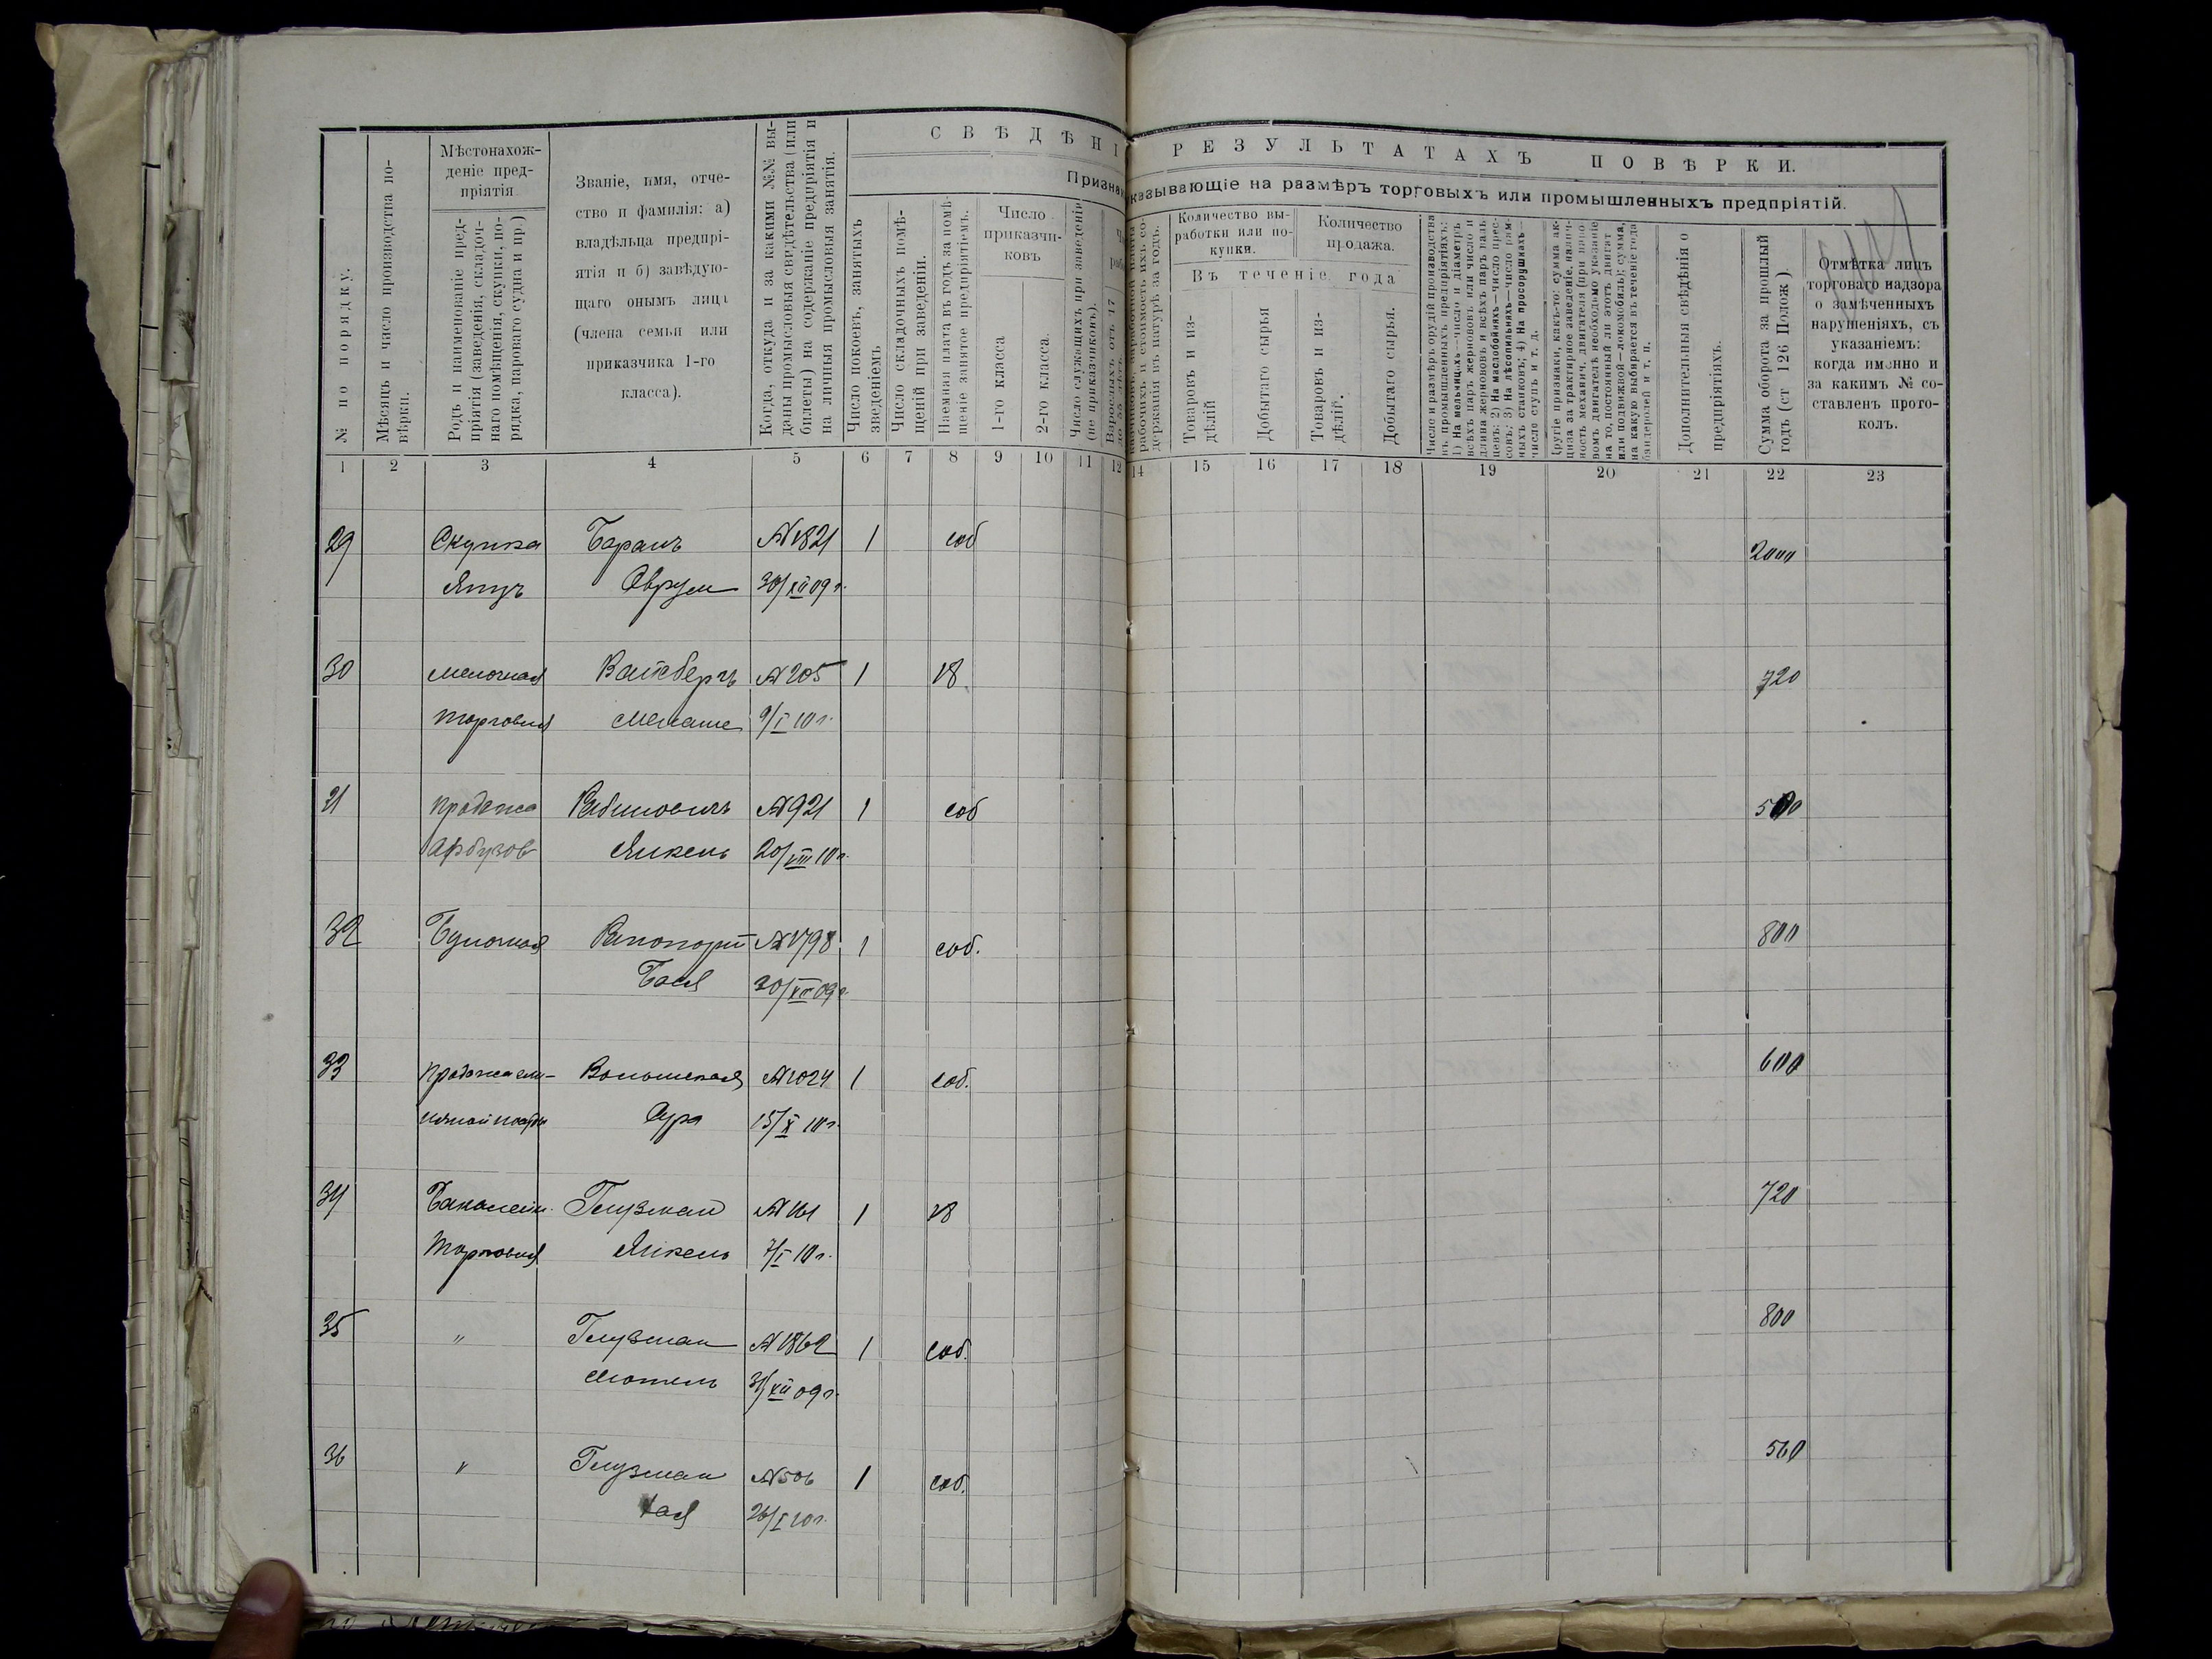 СВѢДѢНІ
РЕЗУЛЬТАТАХЪ ПОВѢРКИ.
Признак
казывающіе на размѣръ торговыхъ или промышленныхъ предпріятій.
№ по порядку.
Мѣсяцъ и число производства по-
вѣрки.
Мѣстонахож-
деніе пред-
пріятія
Родъ и наименованіе пред-
пріятія (заведенія, складоч-
наго помѣщенія, скупки, по-
рядка, пароваго судна и пр.)
Званіе, имя, отче-
ство и фамилія: а)
владѣльца предпрі-
ятія и б) завѣдую-
щаго онымъ лица
(члена семьи или
приказчика 1-го
класса).
Когда, откуда и за какими №№ вы-
даны промысловыя свидѣтельства (или
билеты) на содержаніе предпріятія и
на личныя промысловыя занятія.
Число покоевъ, занятыхъ
зведеніемъ
Число складочныхъ помѣ-
щеній при заведеніи.
Наемная плата въ годъ за помѣ-
щеніе занятое предпріятіемъ.
Число
приказчи-
ковъ
1-го класса
2-го класса.
Число служащихъ при заведеніи
(не приказчиковъ).
Взрослыхъ отъ 17
рабочихъ и стоимость ихъ со-
держанія въ натурѣ за годъ.
Количество вы-
работки или по-
купки.
Количество
продажа.
Въ теченіе года
Товаровъ и из-
дѣлій
Добытаго сырья
Товаровъ и из-
дѣлій.
Добытаго сырья.
Число и размѣръ орудій производства
въ промышленныхъ предпріятіяхъ:
1) На мельницахъ—число и діаметръ
всѣхъ паръ жернововъ или число и
длина жернововъ и всѣхъ паръ валь
цевъ; 2) На маслобойняхъ—число прес-
совъ; 3) На лѣсопильняхъ—число рам-
ныхъ станковъ; 4) На просорушкахъ—
число ступъ и т. д.
Другіе признаки, какъ-то: сумма ак-
циза за трактирное заведеніе, налич-
ность механич. двигателя (при паро-
вомъ двигателѣ необходимо указаніе
на то, постоянный ли этотъ двигат
или подвижной—локомобиль); сумма,
на какую выбирается въ теченіе года
бандеролей и т. п.
Дополнительныя свѣдѣнія о
предпріятіяхъ.
Сумма оборота за прошлый
годъ (ст 126 Полож)
Отмѣтка лицъ
торговаго надзора
о замѣченныхъ
нарушеніяхъ, съ
указаніемъ:
когда именно и
за какимъ № со-
ставленъ прото-
колъ.
1 2 3 4 5 6 7 8 9 10 11 12 14 15 16 17 18 19 20 21 22 23
29 Скупка Баранъ №1821 1 соб 2000
Яицъ Аврум 30/XII 09 г.
30 мелочная Вайсбергъ №205 1 18 720
торговля Менаше 9/I 10 г.
21 продажа Рабиновичъ №921 1 соб 500
Арбузов Янкель 20/VIII 10 г.
32 Булочная Рапопорт №1798 1 соб. 800
Бася 30/XII 09 г.
33 продажа Волошская №1024 1 соб. 600
Сура 15/X 10 г.
34 Бакалейн. Глузман №161 1 18 720
Торговля Янкель 7/I 10 г.
35 " Глузман №1862 1 соб. 800
Мотель 31/XII 09 г.
36 " Глузман №506 1 соб. 560
26/I 10 г.